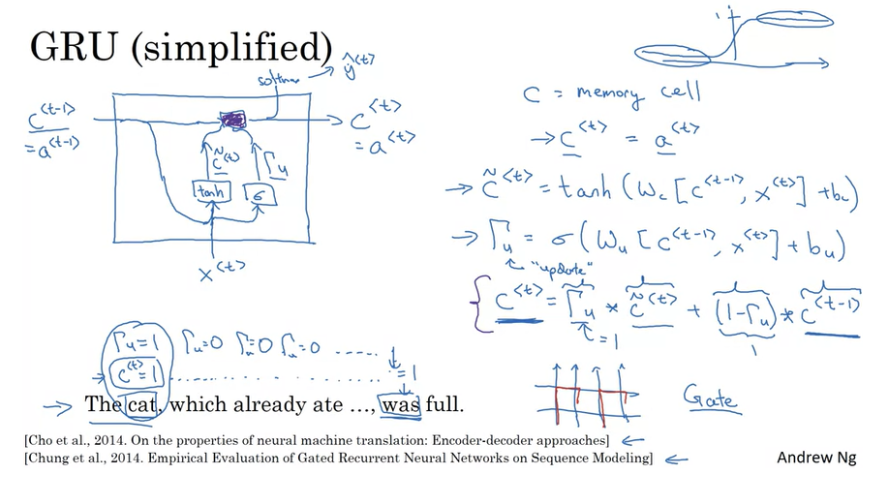 GRU (simplified)
softmax → ŷ<t>
c<t-1>
= a<t-1>
c<t>
= a<t>
c̃<t>
Γu
tanh
σ
x<t>
1
C = memory cell
→ c<t> = a<t>
→ c̃<t> = tanh (Wc [c<t-1>, x<t>] + bc)
→ Γu = σ (Wu [c<t-1>, x<t>] + bu)
"update"
{ c<t> = Γu * c̃<t> + (1-Γu) * c<t-1>
= 1
1
Γu=1 Γu=0 Γu=0 Γu=0 .....
c<t>=1 .................. =1
→ The cat, which already ate ..., was full.
Gate
[Cho et al., 2014. On the properties of neural machine translation: Encoder-decoder approaches] ←
[Chung et al., 2014. Empirical Evaluation of Gated Recurrent Neural Networks on Sequence Modeling] ←
Andrew Ng